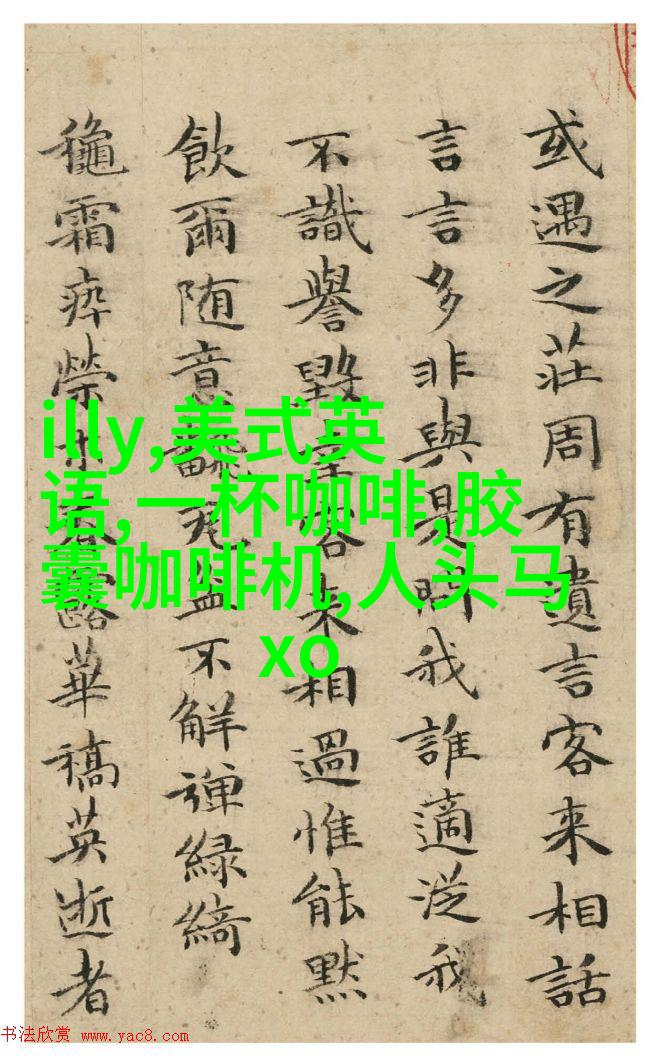 或遇之莊周有遺言客来相話
言言多非與是問我誰適従我
不識譽毀客来相過惟能默
飲爾随意不解弾緑綺
龝霜瘁榮木春露華稿英逝者
illy,美式英
语,一杯咖啡,胶
囊咖啡机,人头马
xo
书法欣赏 www.yac8.com